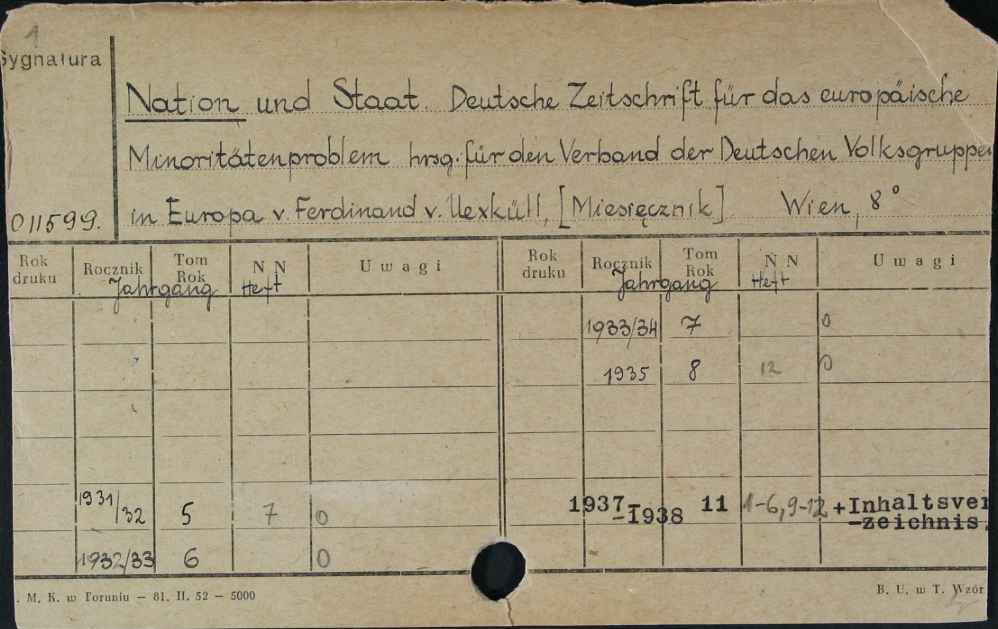 1
Sygnatura
Nation und Staat. Deutsche Zeitschrift für das europäische
Minoritätenproblem hrsg. für den Verband der Deutschen Volksgruppen
in Europa v. Ferdinand v. Uexküll, [Miesięcznik] Wien, 8°
011599.
Rok druku Rocznik Tom Rok N N Uwagi Rok druku Rocznik Tom Rok N N Uwagi
Jahrgang Heft Jahrgang Heft
1933/34 7 0
1935 8 12 0
1931/32 5 7 0 1937–1938 11 1-6, 9-12 +Inhaltsver
-zeichnis.
1932/33 6 0
. M. K. w Toruniu — 81. II. 52 — 5000 B. U. w T. Wzór